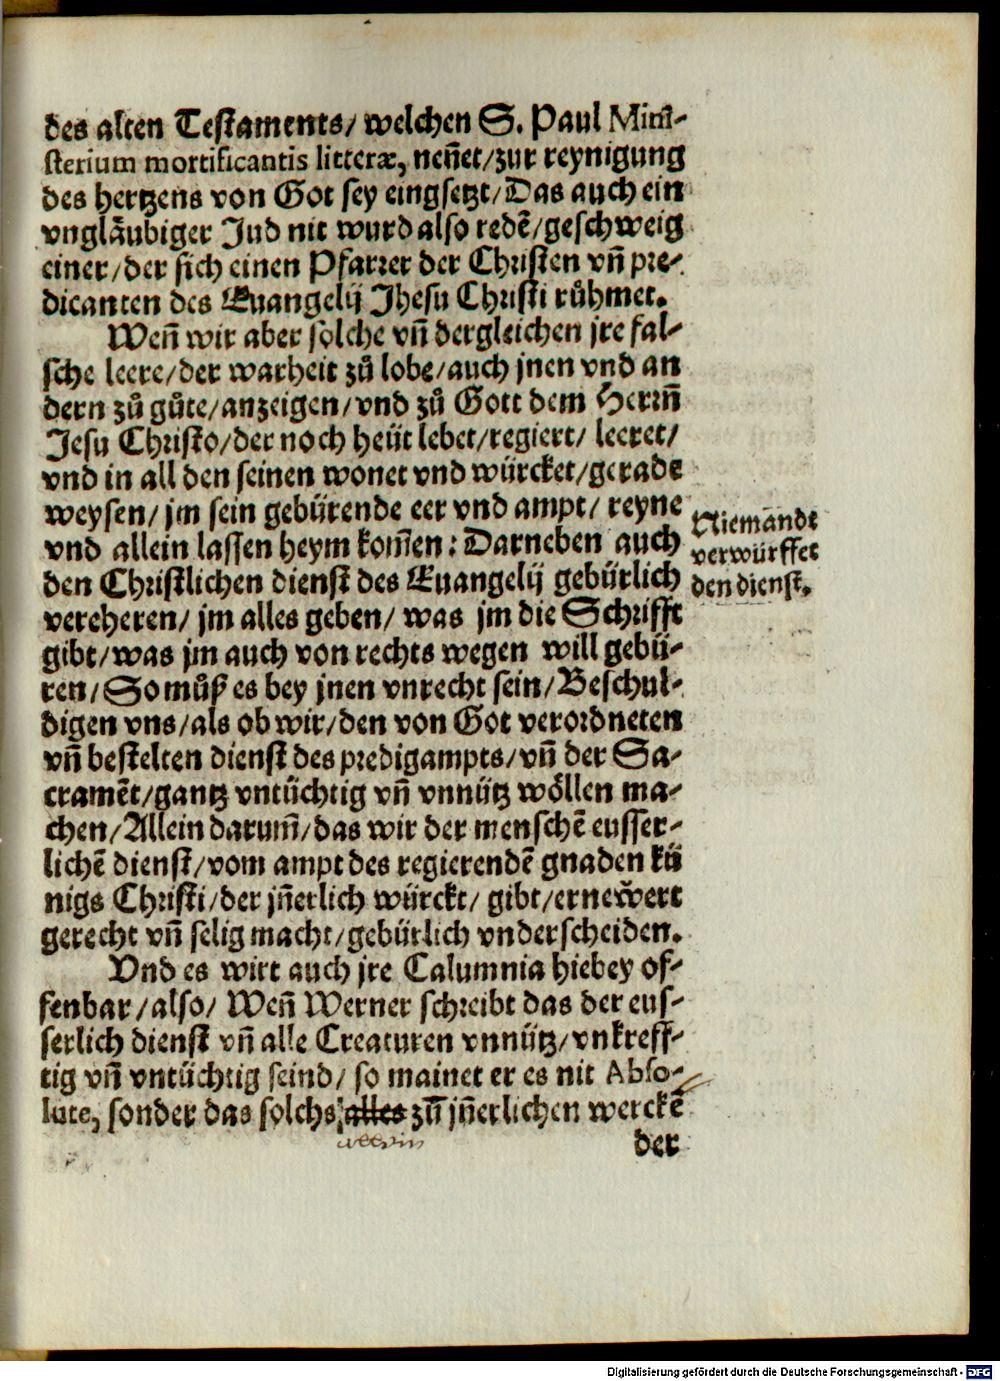 des alten Testaments/ welchen S. Paul Mini-
sterium mortificantis litteræ, neñet/ zur reynigung
des hertzens von Got sey eingsetzt/ Das auch ein
vngläubiger Jud nit wurd also redē/ geschweig
einer/ der sich einen Pfarrer der Christen vñ pre-
dicanten des Euangelij Jhesu Christi růhmet.
Weñ wir aber solche vñ dergleichen jre fal-
sche leere/ der warheit zů lobe/ auch jnen vnd an
dern zů gůte/ anzeigen/ vnd zů Gott dem Herrñ
Jesu Christo/ der noch heüt lebet/ regiert/ leeret/
vnd in all den seinen wonet vnd würcket/ gerade
weysen/ jm sein gebürende eer vnd ampt/ reyne
vnd allein lassen heym kom̃en: Darneben auch
den Christlichen dienst des Euangelij gebürlich
vereheren/ jm alles geben/ was jm die Schrifft
gibt/ was jm auch von rechts wegen will gebü-
ren/ So můß es bey jnen vnrecht sein/ Beschul-
digen vns/ als ob wir/ den von Got verordneten
vñ bestelten dienst des predigampts/ vñ der Sa-
cramēt/ gantz vntüchtig vñ vnnütz wöllen ma-
chen/ Allein darum̃/ das wir der menschē eusser-
lichē dienst/ vom ampt des regierendē gnaden kü
nigs Christi/ der jñerlich würckt/ gibt/ ernewert
gerecht vñ selig macht/ gebürlich vnderscheiden.
Vnd es wirt auch jre Calumnia hiebey of-
fenbar/ also/ Weñ Werner schreibt das der eus-
serlich dienst vñ alle Creaturen vnnütz/ vnkreff-
tig vñ vntüchtig seind/ so mainet er es nit Abso-
lute, sonder das solchs alles zum̃ jñerlichen werckē
allein
der
Niemandt
verwürffet
den dienst.
Digitalisierung gefördert durch die Deutsche Forschungsgemeinschaft - DFG